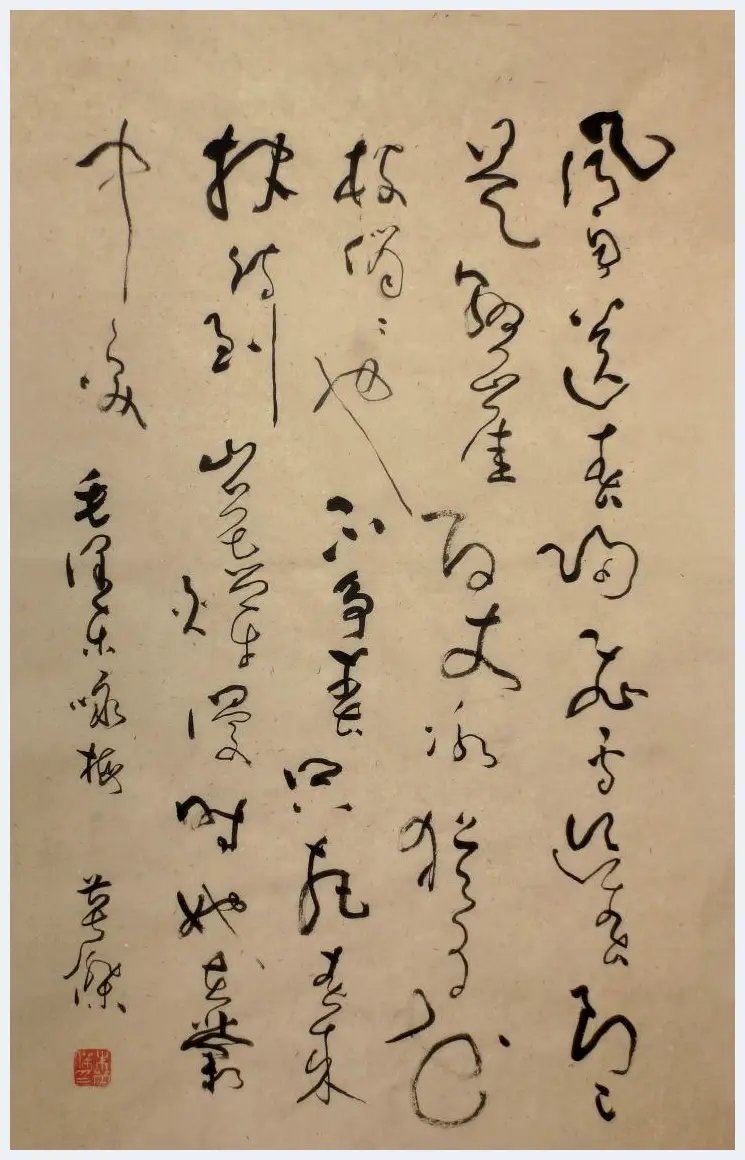 風雨送春歸飛雪迎春到已
是懸崖百丈冰猶有花
枝俏〻也不争春只把春來
報待到山花爛漫時她在叢
中笑 毛澤東咏梅